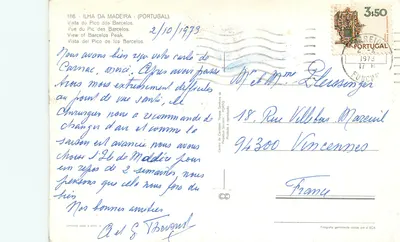 166 - ILHA DA MADEIRA - (PORTUGAL)
Vista do Pico dos Barcelos
Vue du Pic des Barcelos
View of Barcelos Peak
2/10/1973
Nous avons bien reçu votre carte de
Carnac, merci. Après avoir passé
trois mois extrêmement difficiles
au point de vue santé, le
chirurgien nous a recommandé de
changer d'air et comme la
saison est avancée nous avons
choisi l'Ile de Madère pour
un repos de 2 semaines, nous
pensons que cela nous fera du
bien.
Nos bonnes amitiés
A et G
3$50
PORTUGAL
1973
FUNCHAL
Mr et Mme
18, Rue Villebois Mareuil
94300 Vincennes
France